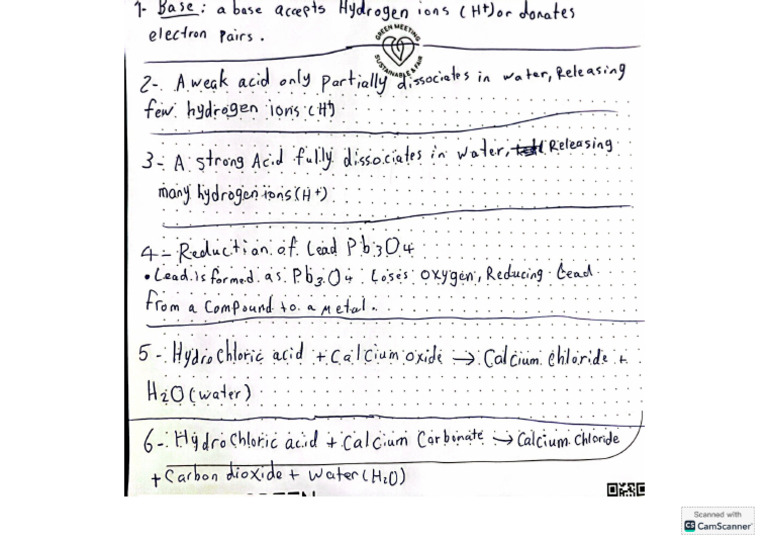 1- Base : a base accepts Hydrogen ions (H+) or donates
electron Pairs .
GREEN MEETING
SUSTAINABLE & FAIR
2-. A weak acid only Partially dissociates in water, Releasing
few hydrogen ions (H+)
3- A strong Acid fully dissociates in water, Releasing
many hydrogen ions (H+)
4- Reduction of Lead Pb3O4
• Lead is formed as Pb3O4 Loses oxygen, Reducing Lead
from a Compound to a Metal .
5-. Hydrochloric acid + Calcium oxide → Calcium Chloride +
H2O (water)
6-. Hydrochloric acid + Calcium Carbonate → Calcium Chloride
+ Carbon dioxide + water (H2O)
Scanned with
CS CamScanner